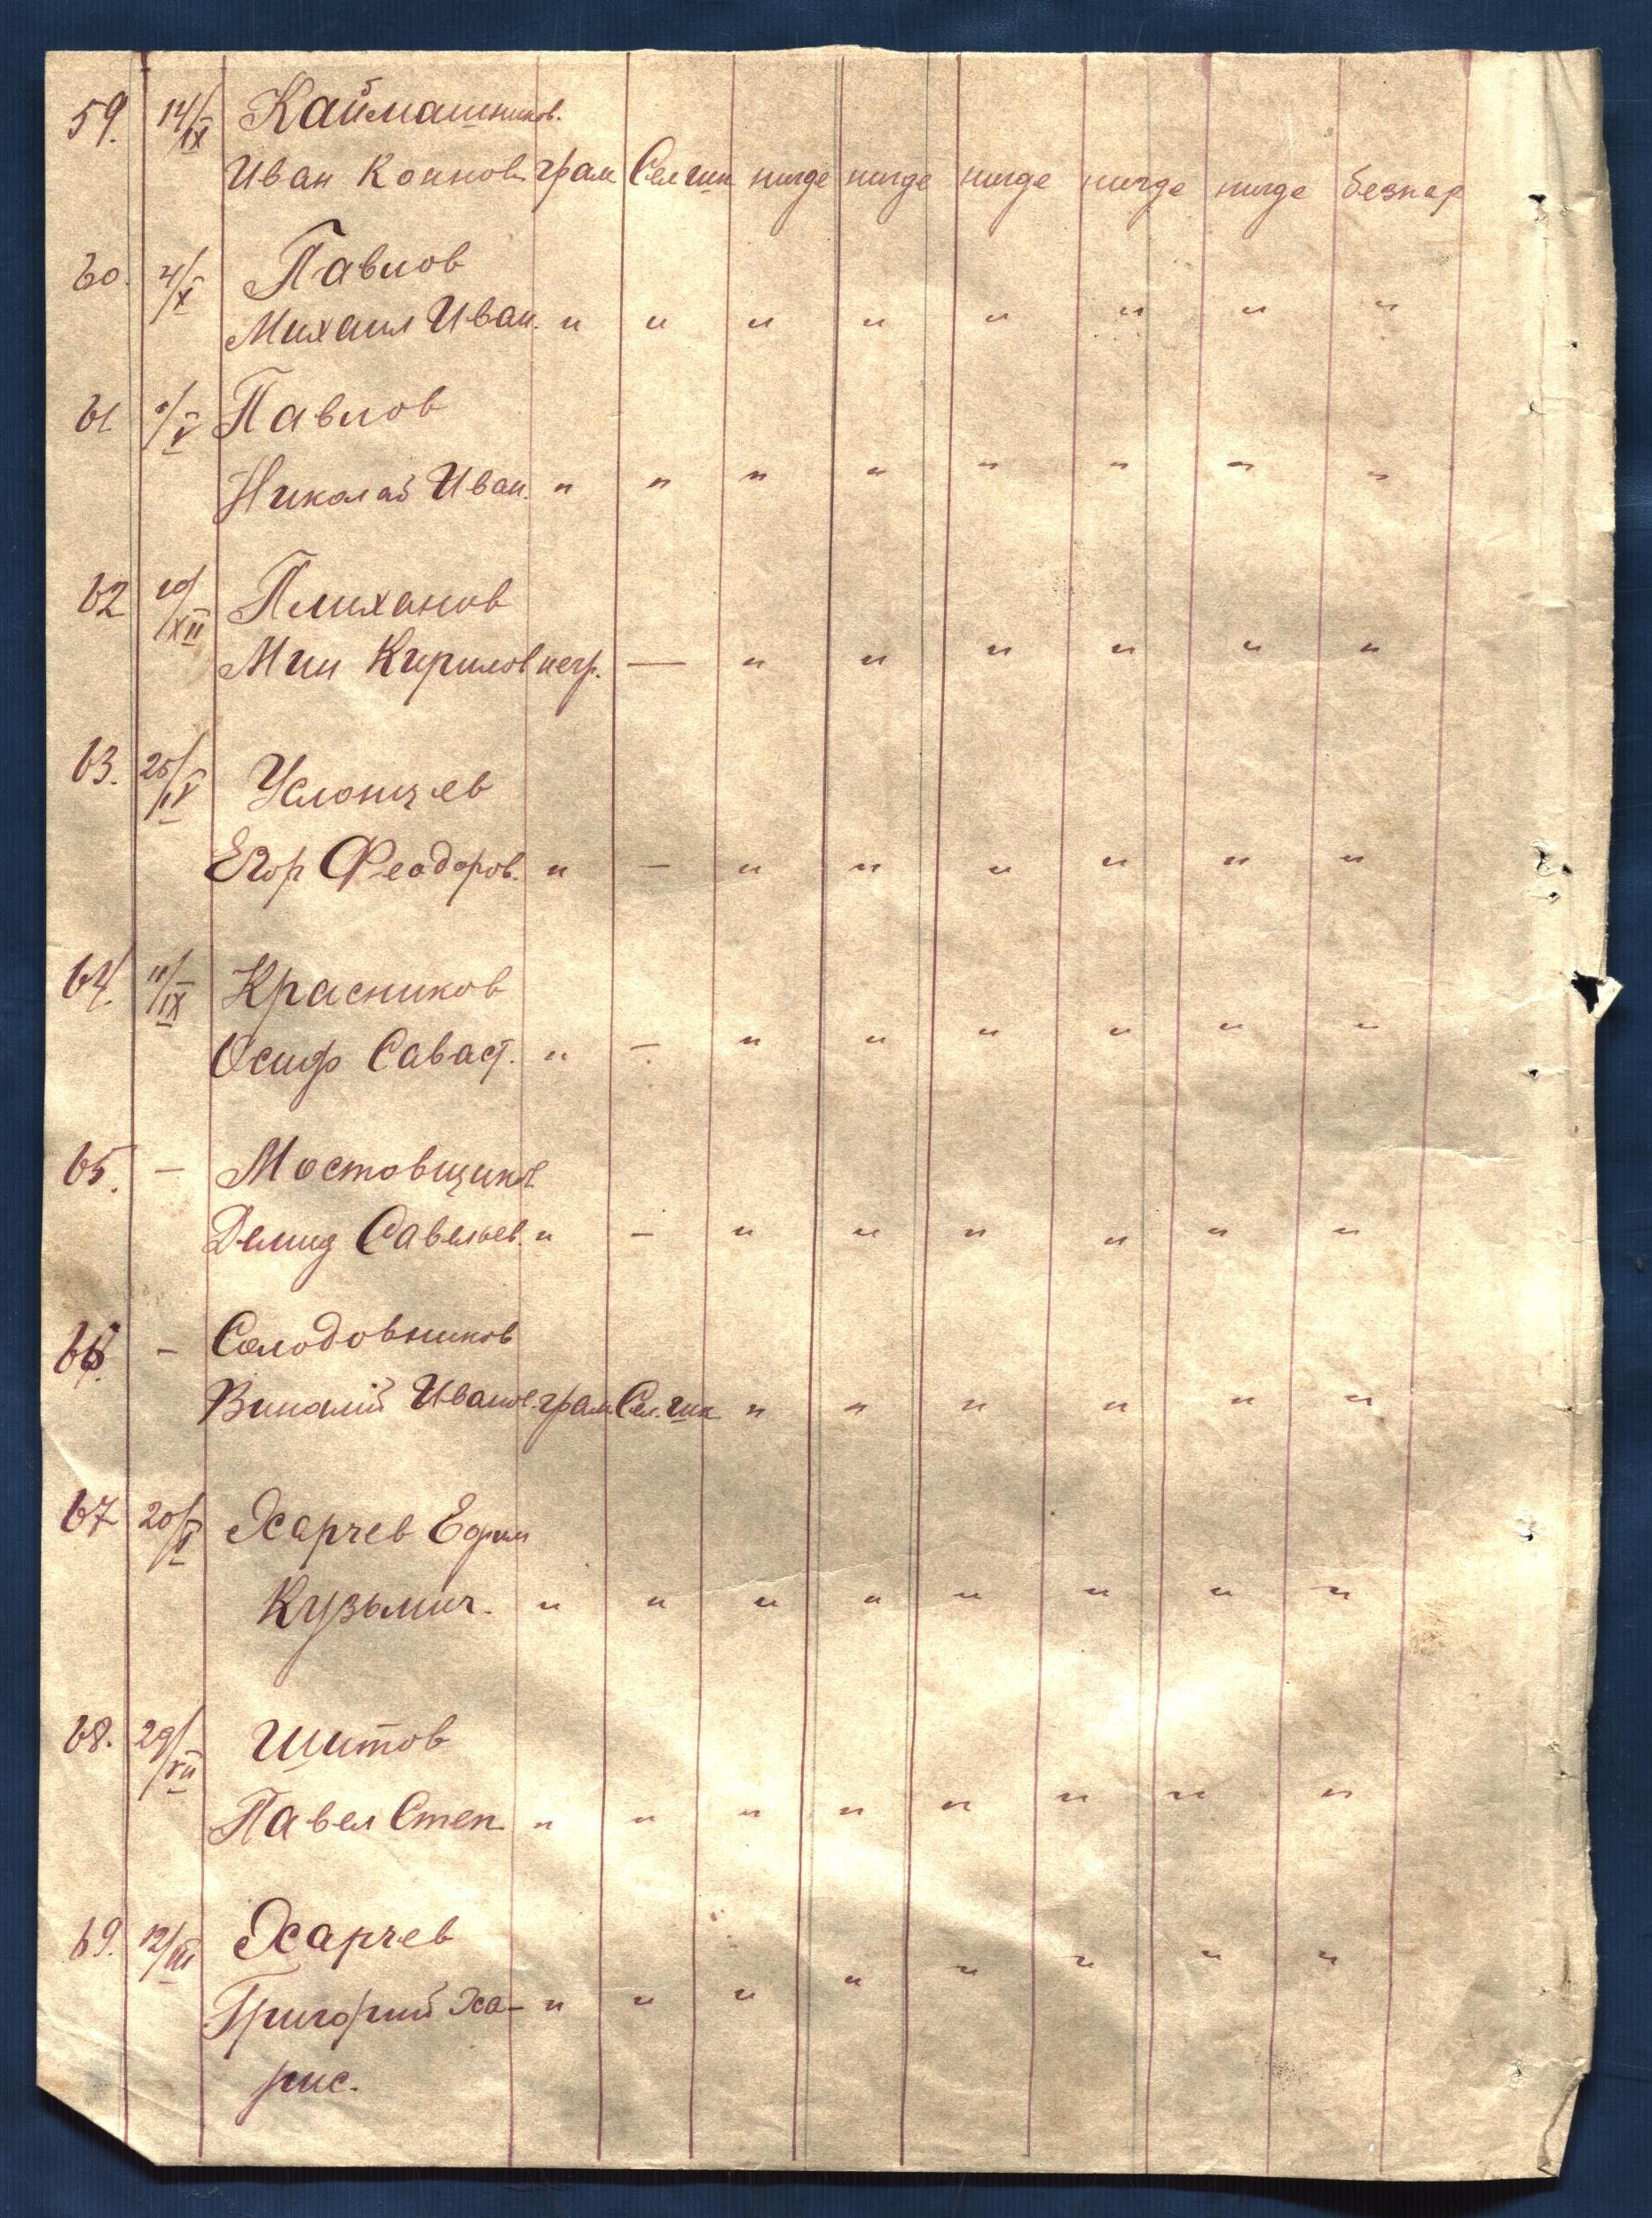 59. 14/IX Каймашников.
Иван Коннов. грам Сел шк нигде нигде нигде нигде нигде безпар
60. 4/X Павлов
Михаил Иван. " " " " " " " "
61 /V Павлов
Николай Иван. " " " " " " " "
62 10/XII Плиханов
Мин Кирилов негр. — " " " " " "
63. 25/IV Услонцев
Егор Феодоров. " — " " " " " "
64. 11/IX Красников
Осиф Саваст. " — " " " " " "
65. — Мостовщиков
Демид Савельев. " — " " " " " "
66. — Солодовников
Виталий Иванов. грам. Сел. шк " " " " " "
67 20/V Хсарчев Ефим
Кузьмич. " " " " " " " "
68. 29/VII Шитов
Павел Степ. " " " " " " " "
69. 12/III Хсарчев
Григорий Ха- " " " " " " " "
рис.